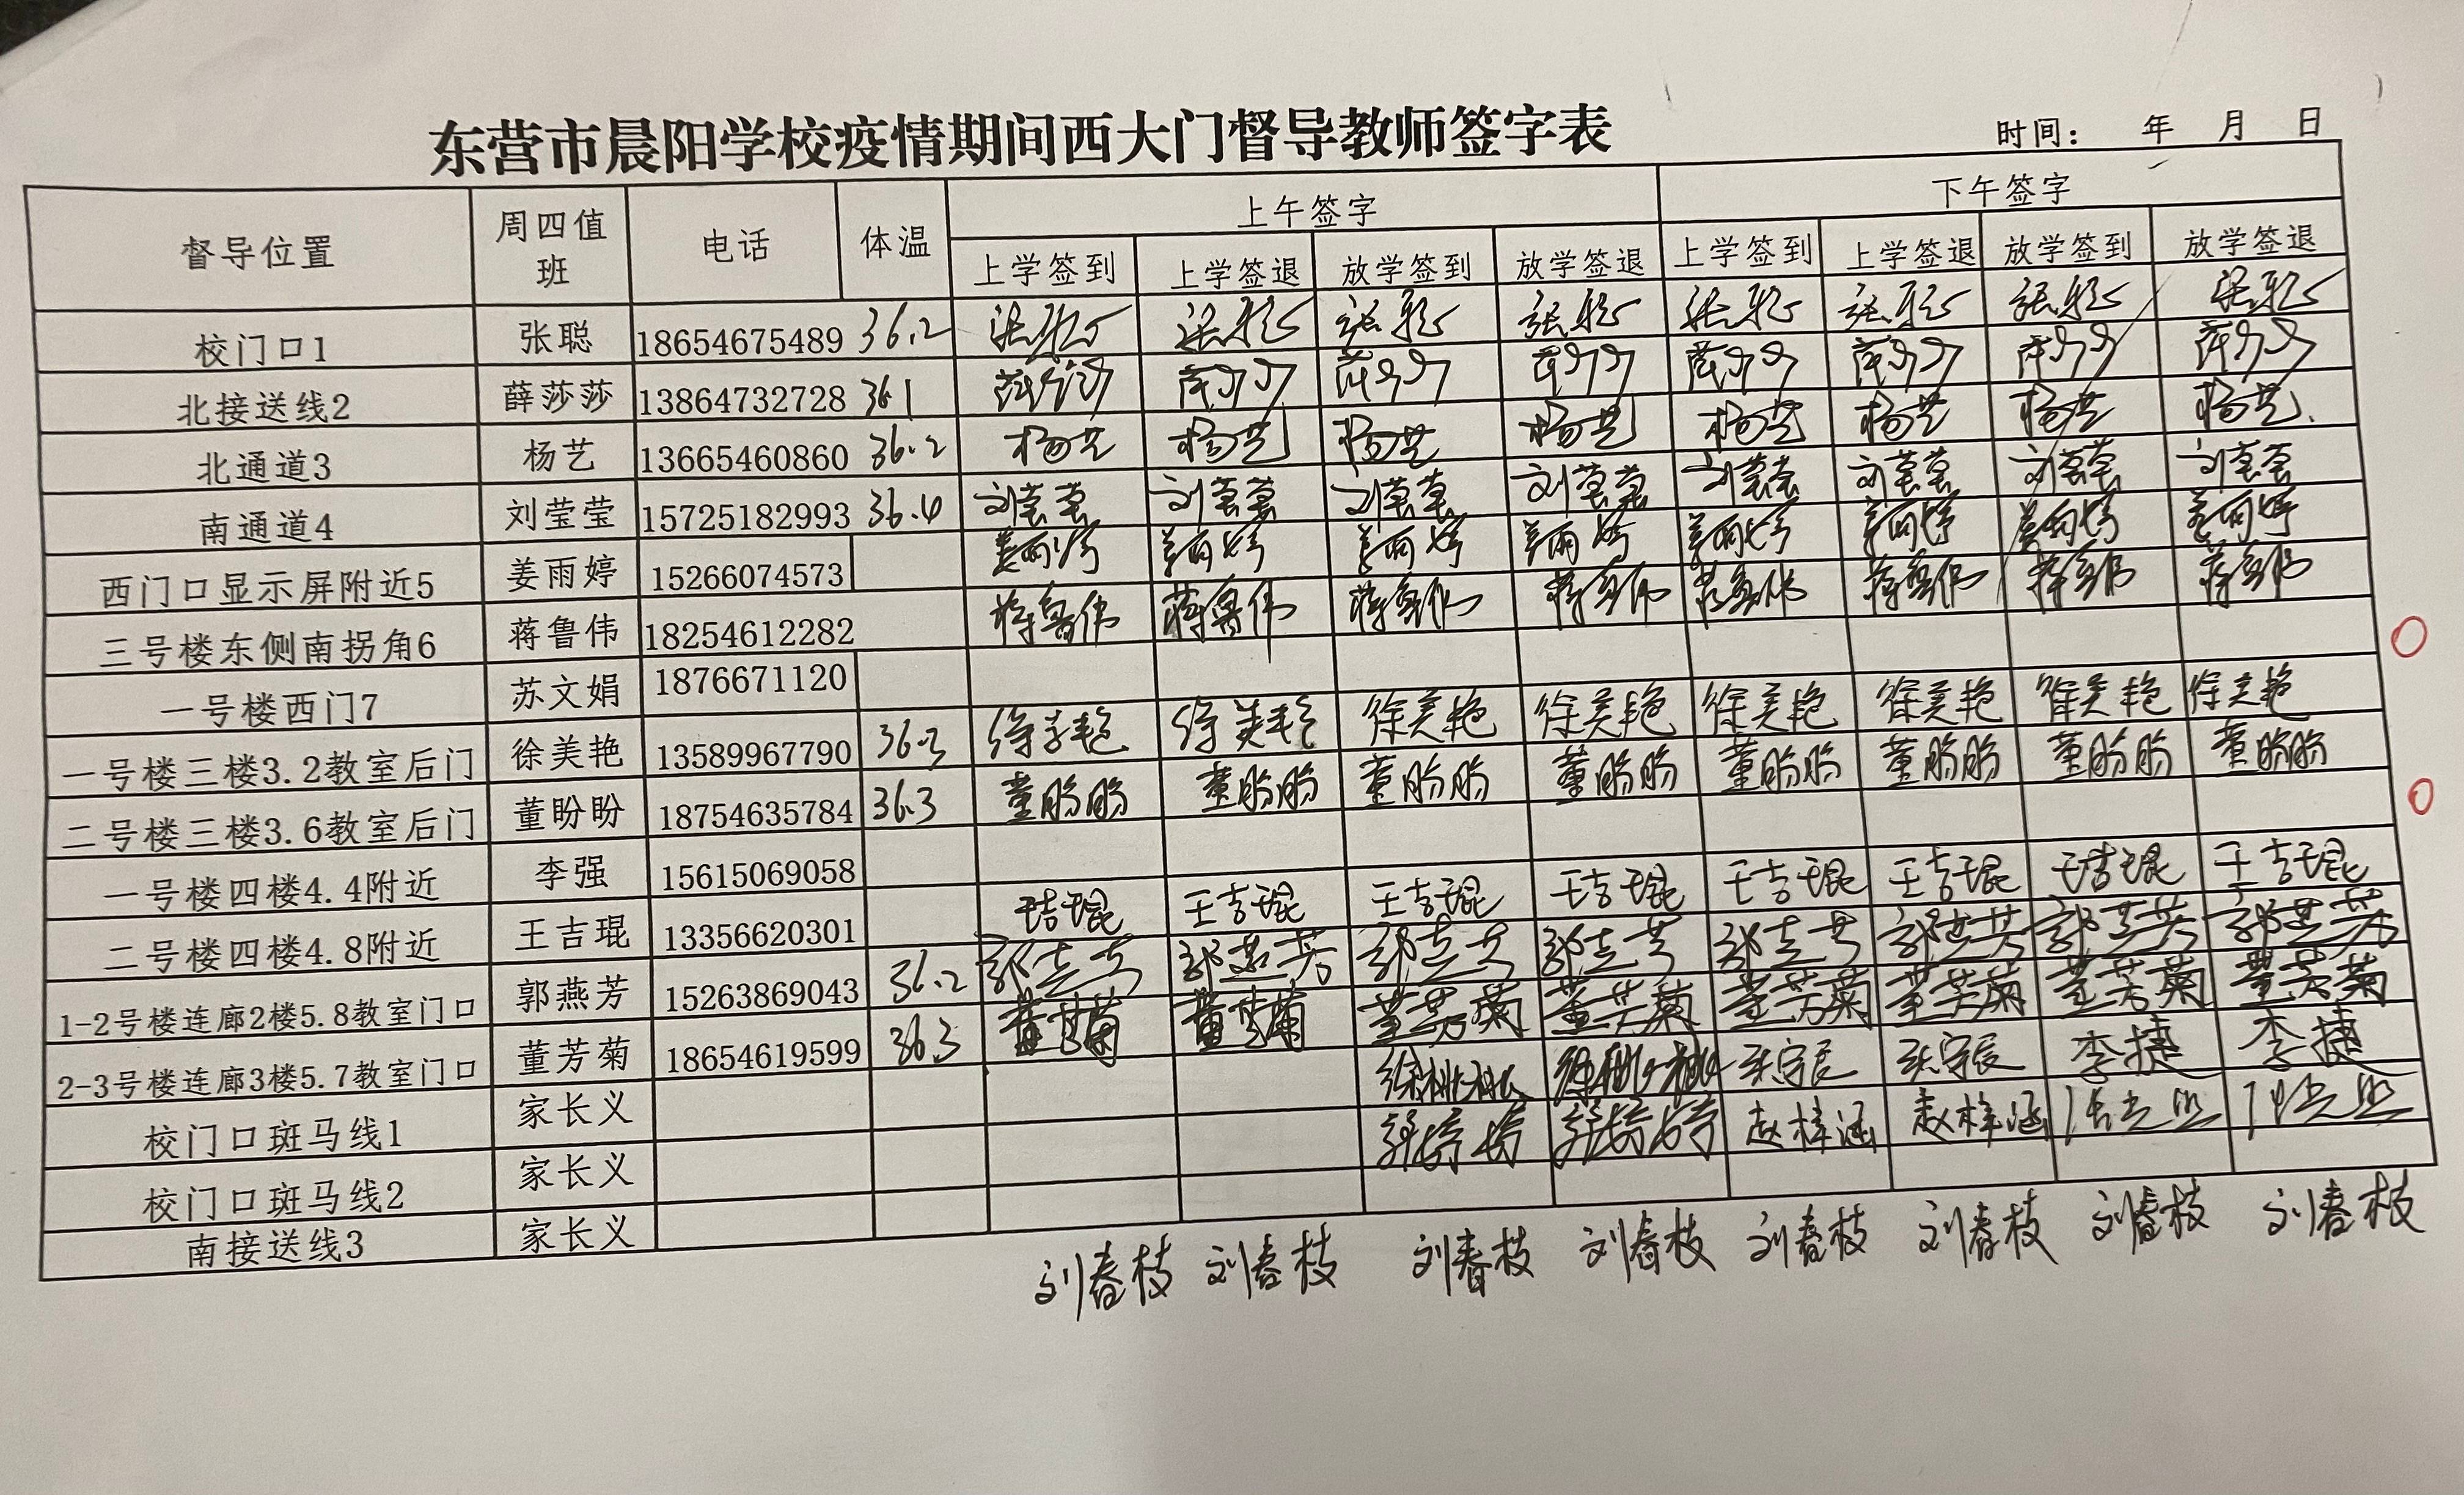 东营市晨阳学校疫情期间西大门督导教师签字表
时间： 年 月 日
督导位置 周四值班 电话 体温 上午签字 下午签字
上学签到 上学签退 放学签到 放学签退 上学签到 上学签退 放学签到 放学签退
校门口1 张聪 18654675489 36.2 张聪 张聪 张聪 张聪 张聪 张聪 张聪 张聪
北接送线2 薛莎莎 13864732728 36.1 薛莎莎 薛莎莎 薛莎莎 薛莎莎 薛莎莎 薛莎莎 薛莎莎 薛莎莎
北通道3 杨艺 13665460860 36.2 杨艺 杨艺 杨艺 杨艺 杨艺 杨艺 杨艺 杨艺
南通道4 刘莹莹 15725182993 36.4 刘莹莹 刘莹莹 刘莹莹 刘莹莹 刘莹莹 刘莹莹 刘莹莹 刘莹莹
西门口显示屏附近5 姜雨婷 15266074573 姜雨婷 姜雨婷 姜雨婷 姜雨婷 姜雨婷 姜雨婷 姜雨婷 姜雨婷
三号楼东侧南拐角6 蒋鲁伟 18254612282 蒋鲁伟 蒋鲁伟 蒋鲁伟 蒋鲁伟 蒋鲁伟 蒋鲁伟 蒋鲁伟 蒋鲁伟
一号楼西门7 苏文娟 1876671120
一号楼三楼3.2教室后门 徐美艳 13589967790 36.3 徐美艳 徐美艳 徐美艳 徐美艳 徐美艳 徐美艳 徐美艳 徐美艳
二号楼三楼3.6教室后门 董盼盼 18754635784 36.3 董盼盼 董盼盼 董盼盼 董盼盼 董盼盼 董盼盼 董盼盼 董盼盼
一号楼四楼4.4附近 李强 15615069058
二号楼四楼4.8附近 王吉琨 13356620301 王吉琨 王吉琨 王吉琨 王吉琨 王吉琨 王吉琨 王吉琨 王吉琨
1-2号楼连廊2楼5.8教室门口 郭燕芳 15263869043 36.2 郭燕芳 郭燕芳 郭燕芳 郭燕芳 郭燕芳 郭燕芳 郭燕芳 郭燕芳
2-3号楼连廊3楼5.7教室门口 董芳菊 18654619599 36.3 董芳菊 董芳菊 董芳菊 董芳菊 董芳菊 董芳菊 董芳菊 董芳菊
校门口斑马线1 家长义 徐桃桃 徐桃桃 张宇辰 张宇辰 李捷 李捷
校门口斑马线2 家长义 赵梓涵 赵梓涵
南接送线3 家长义
刘春枝 刘春枝 刘春枝 刘春枝 刘春枝 刘春枝 刘春枝 刘春枝